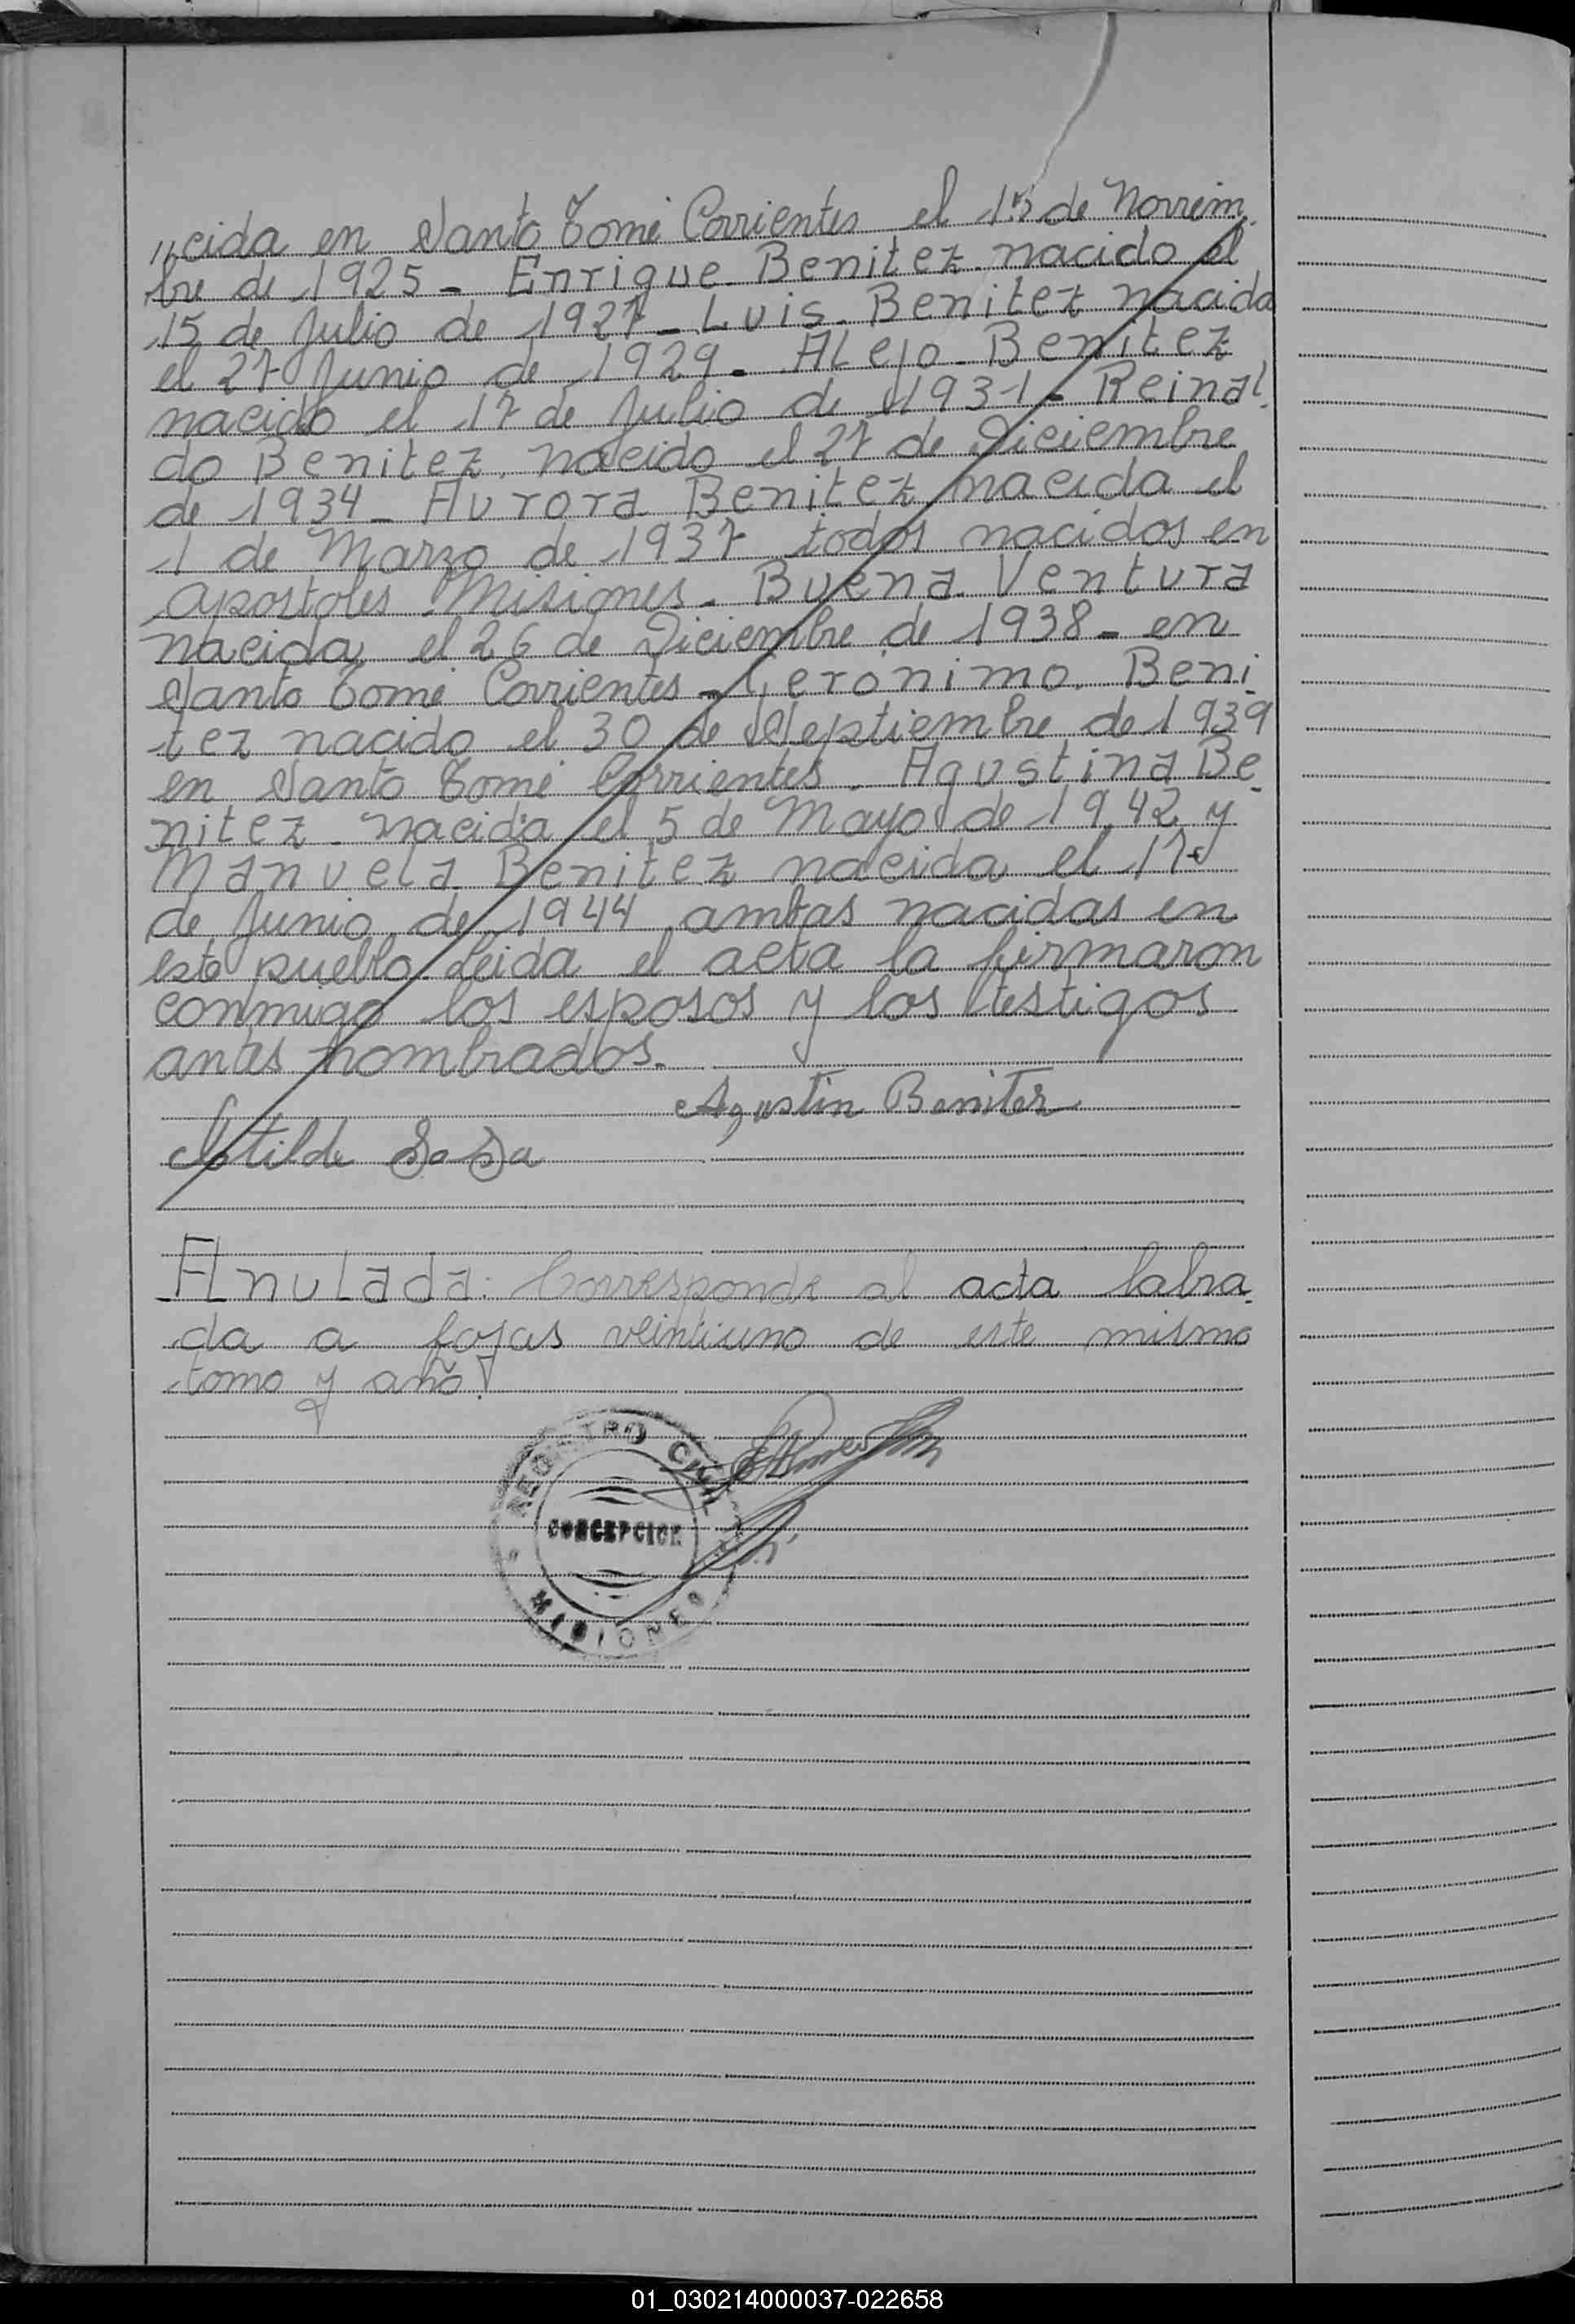 //cida en Santo Tomé Corrientes el 15 de Noviem-
bre de 1925 - Enrique Benitez nacido el
15 de Julio de 1927 - Luis Benitez nacida
el 27 Junio de 1929 - Alejo Benitez
nacido el 17 de Julio de 1931 - Reinal-
do Benitez, nacido el 27 de Diciembre
de 1934 - Aurora Benitez nacida el
1 de Marzo de 1937 todos nacidos en
Apostoles Misiones - Buena Ventura
nacida el 26 de Diciembre de 1938 - en
Santo Tomé Corrientes - Gerónimo Beni-
tez nacido el 30 de Septiembre de 1939
en Santo Tomé Corrientes - Agustina Be-
nitez nacida el 5 de Mayo de 1942 y
Manuela Benitez nacida el 17
de Junio de 1944 ambas nacidas en
este pueblo leida el acta la firmaron
conmigo los esposos y los testigos
antes nombrados.-
Agustin Benitez
Clotilde Sosa
Anulada: Corresponde al acta labra-
da a fojas veintiuno de este mismo
tomo y año
REGISTRO CIVIL
CONCEPCION
MISIONES
01_030214000037-022658